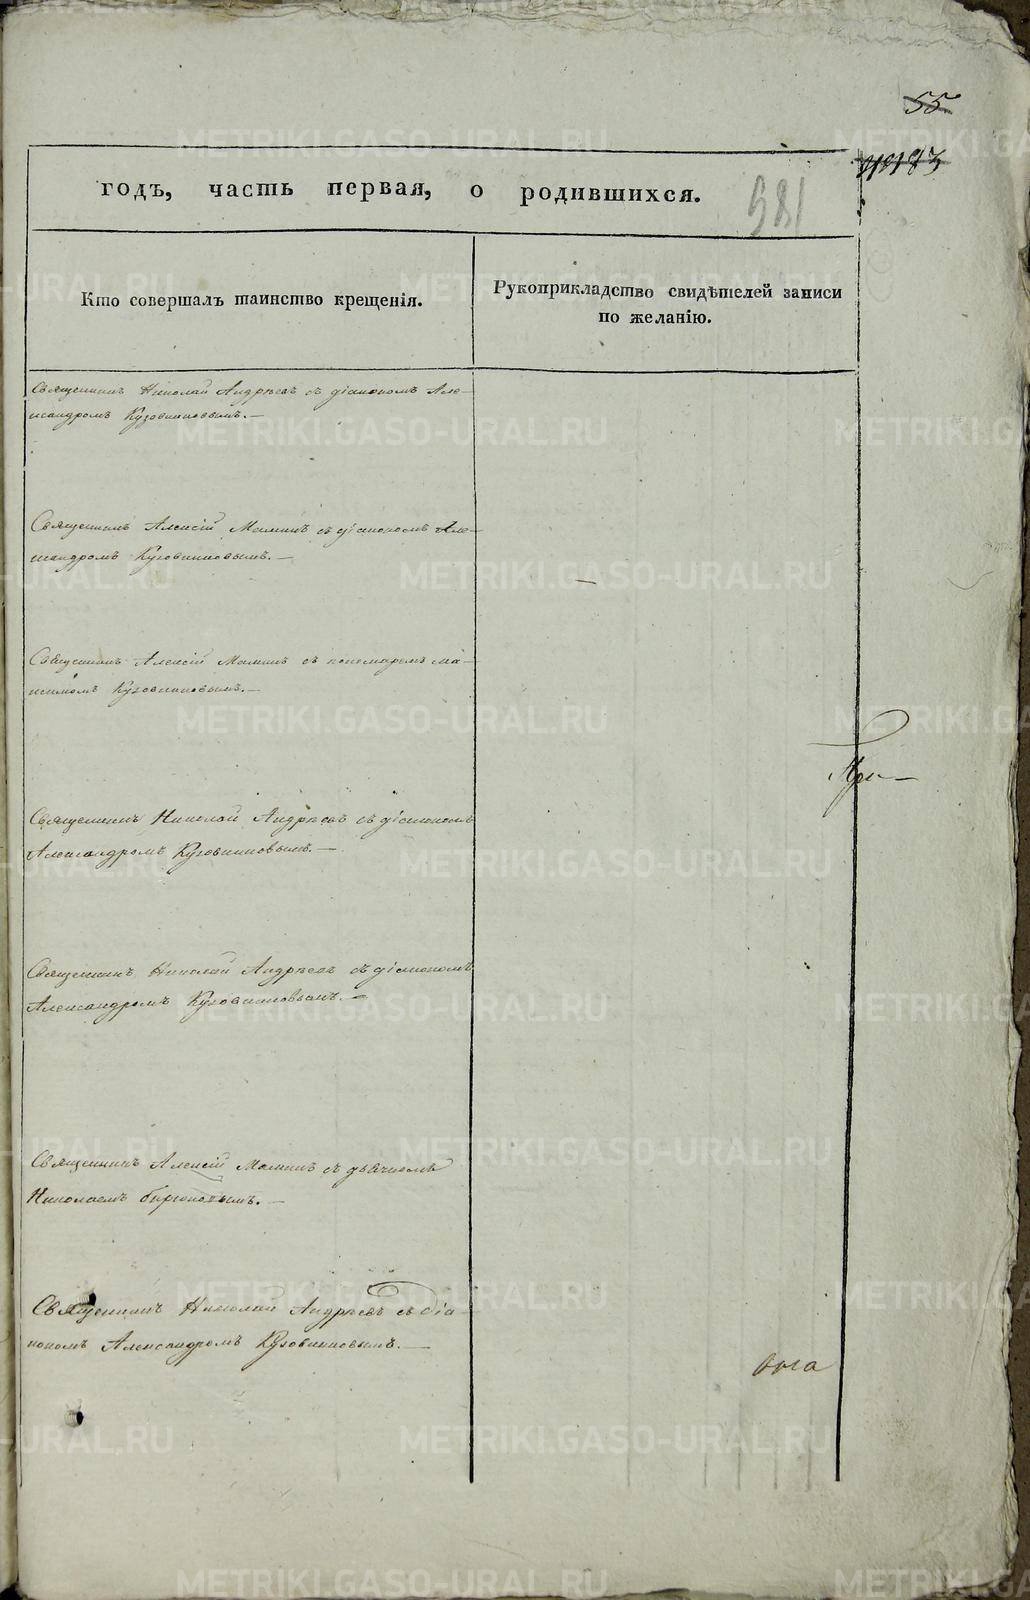 55.
№183
годъ, часть первая, о родившихся.
581
Кто совершалъ таинство крещенія.
Рукоприкладство свидѣтелей записи
по желанію.
Священникъ Николай Андрѣевъ съ діакономъ Але-
ксандромъ Кузовниковымъ.—
Священникъ Алексій Маминъ съ діакономъ Але-
ксандромъ Кузовниковымъ.—
Священникъ Алексій Маминъ съ пономаремъ Ма-
ксимомъ Кузовниковымъ.—
При—
Священникъ Николай Андрѣевъ съ діакономъ
Александромъ Кузовниковымъ.—
Священникъ Николай Андрѣевъ съ діакономъ
Александромъ Кузовниковымъ.—
Священникъ Алексій Маминъ съ дьячкомъ
Николаемъ Бирюковымъ.—
Священникъ Николай Андрѣевъ съ діа-
кономъ Александромъ Кузовниковымъ.—
METRIKI.GASO-URAL.RU